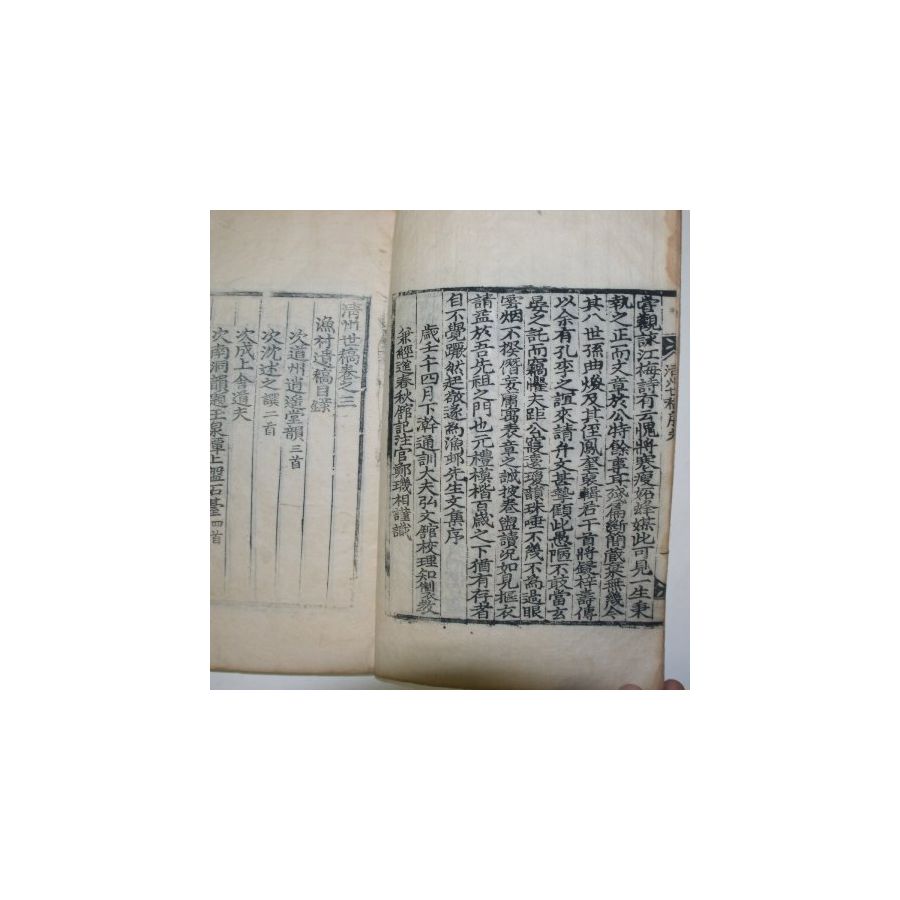 嘗觀詠江梅詩有云愧將寒瘦媚蜂媒此可見一生秉
執之正而文章於公特餘事耳殘篇斷簡蔵棄無幾今
其八世孫曲煥及其侄鳳奎裒輯若干首將錄梓壽傳
以余有孔李之誼來請弁文甚勤顧此愚陋不敢當玄
晏之託而竊懼夫距公寢遠瓊韻珠唾不幾不為過眼
雲烟不揆僭妄庸寓表章之誠披卷盥讀況如見摳衣
請益於吾先祖之門也元禮模楷百歲之下猶有存者
自不覺蹶然起敬遂為漁邨先生文集序
歲壬午四月下澣通訓大夫弘文舘校理知製敎
兼經筵春秋舘記注官鄭璣相謹識
清州世稿卷之三
漁村遺稿目錄
次道州逍遙堂韻三首
次沈述之韻二首
次成上舍道夫
次南洞韻題玉泉潭上盤石臺四首